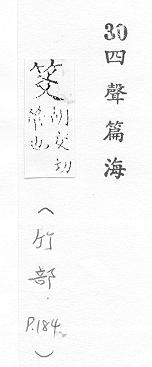 30四聲篇海
胡交切
也
(竹部.P.184.)